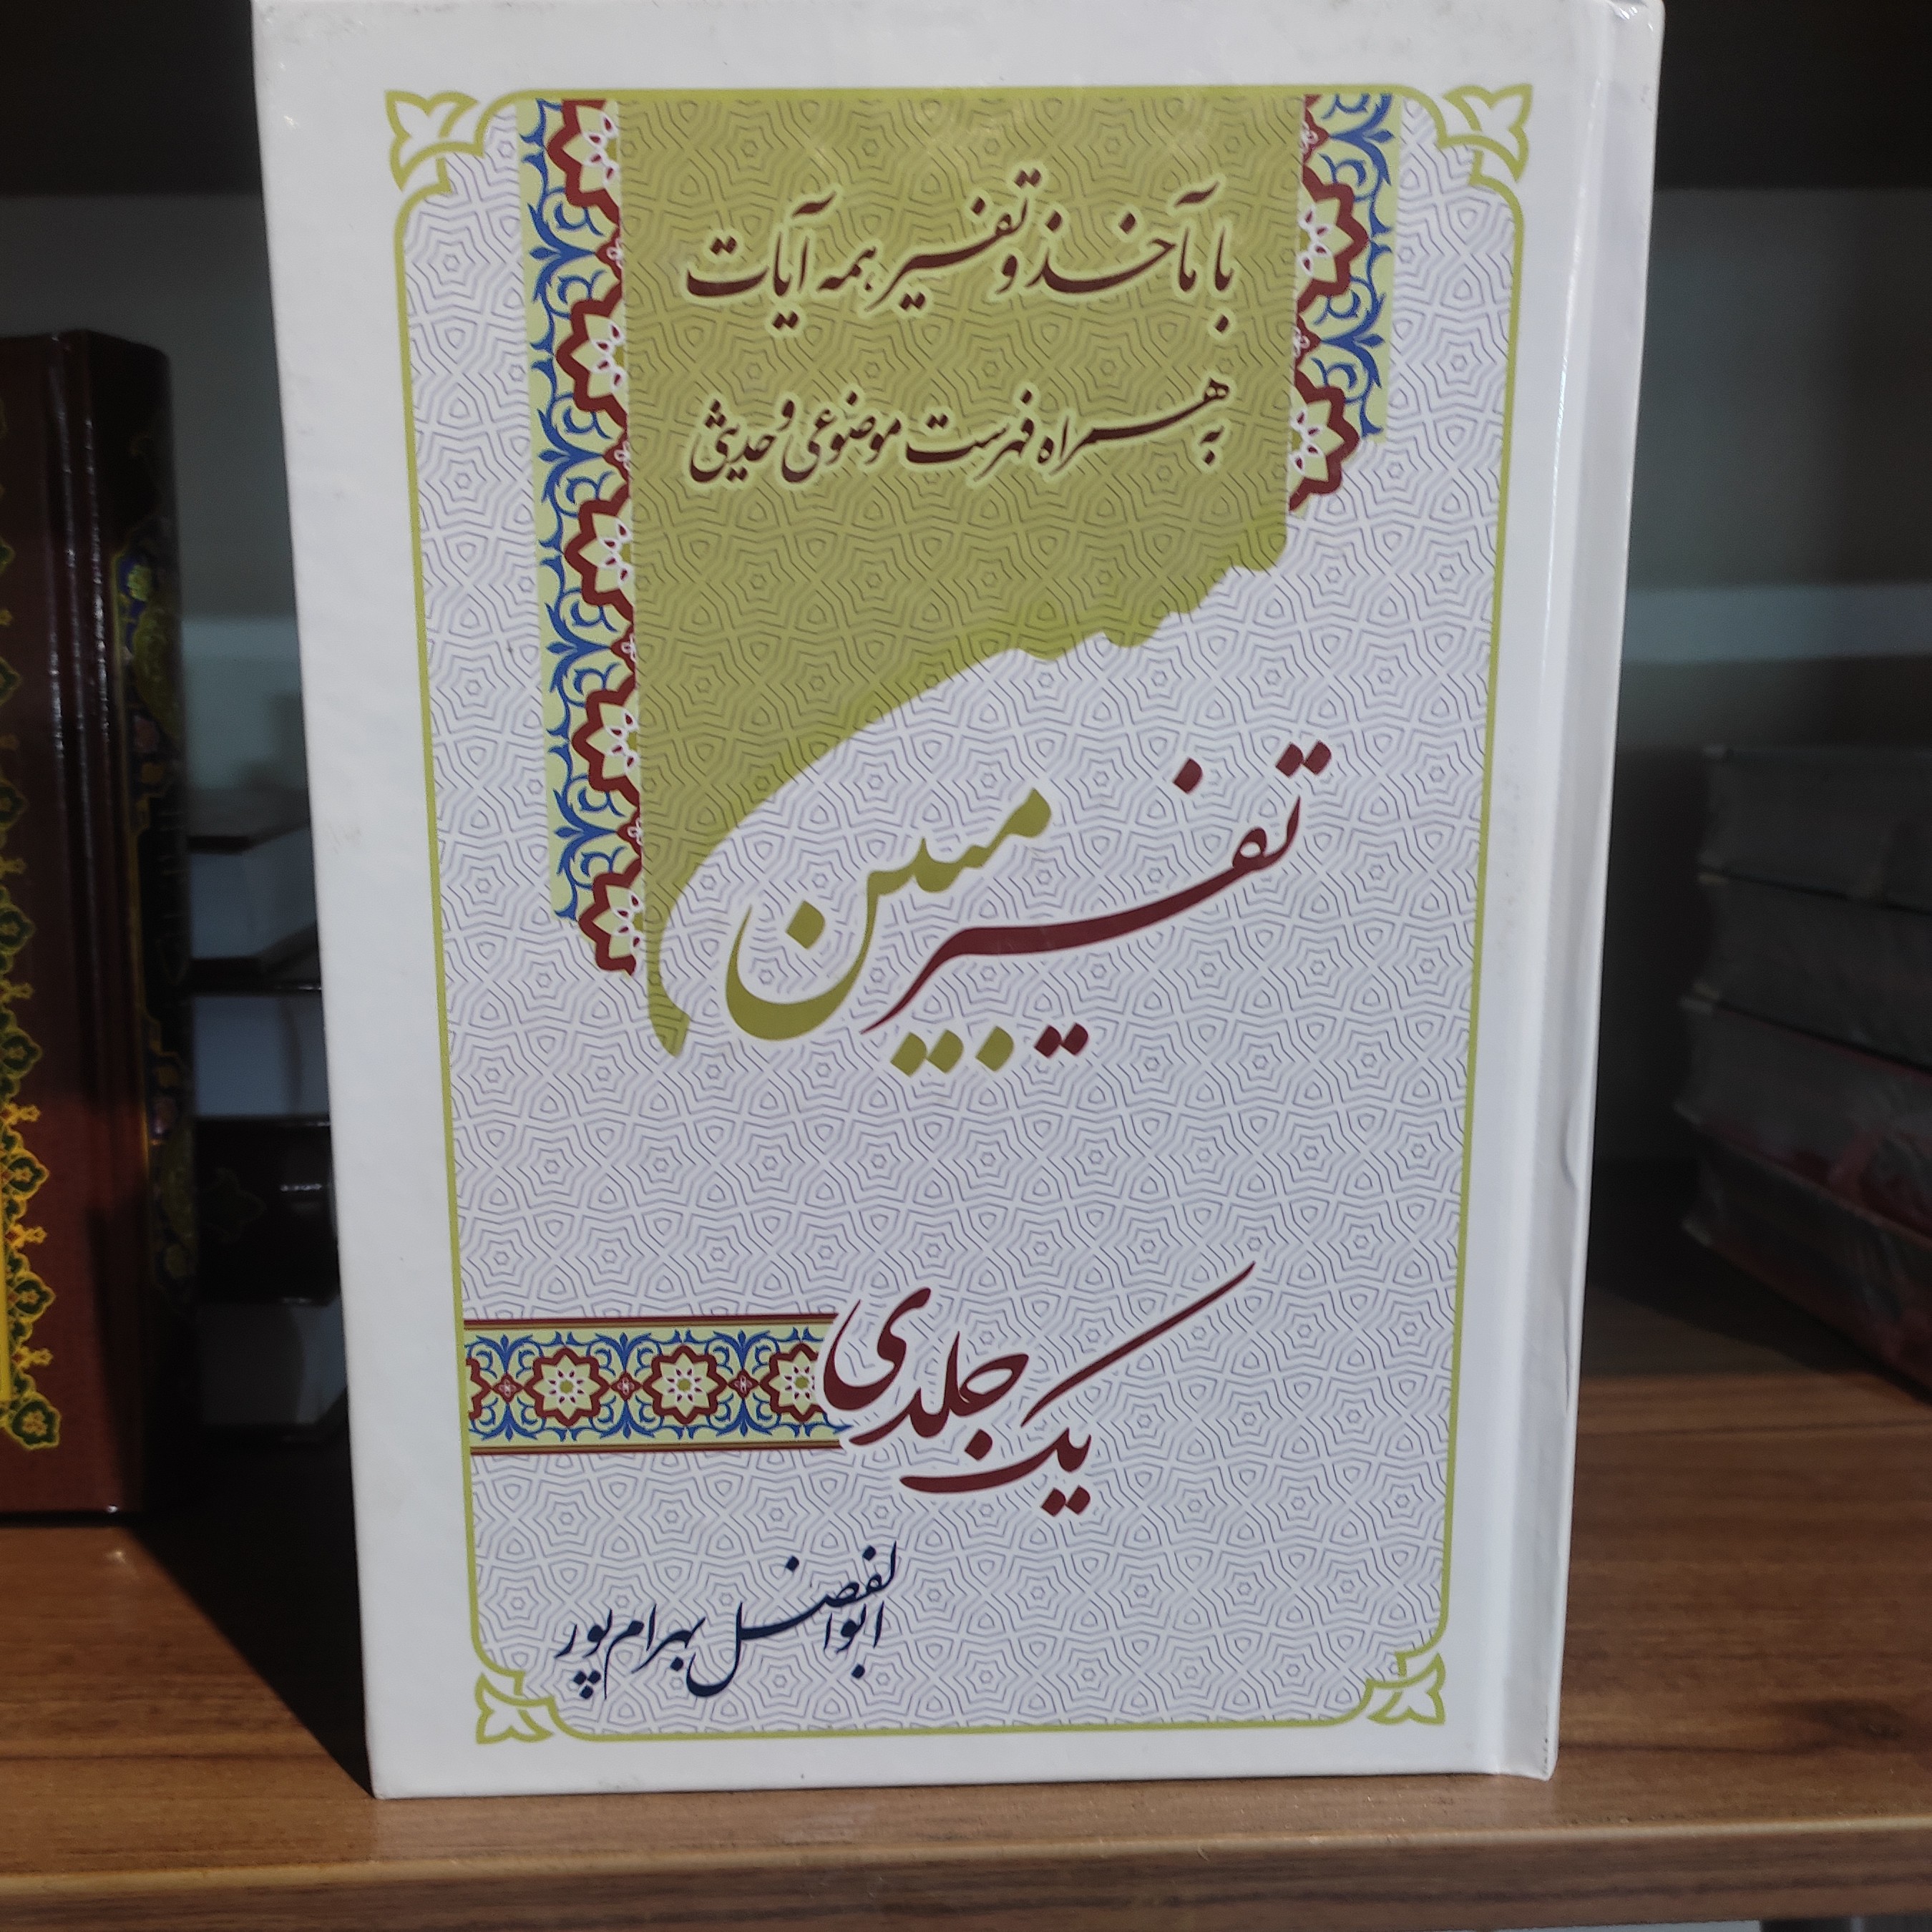 با مآخذ و تفسیر همه آیات
به همراه فهرست موضوعی و حدیثی
تفسیر مبین
یک جلدی
ابوالفضل بهرام‌پور